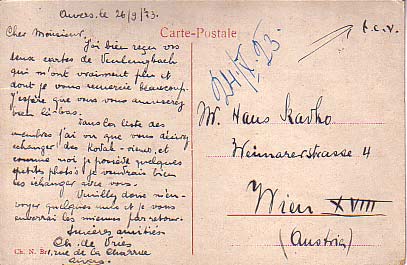 Anvers, le 26/9/23.
Carte-Postale
t.c.v.
24/X 23
Cher Monsieur,
J'ai bien reçu vos
deux cartes de
qui m'ont vraiment plu et
dont je vous remercie beaucoup.
J'espère que vous vous amuserez
bien là-bas.
Dans la liste des
membres j'ai vu que vous désirez
échanger des Kodak-views, et
comme moi je possède quelques
petits photos je voudrais bien
les échanger avec vous.
Veuillez donc m'en-
voyer quelques unes et je vous
enverrai les miennes par retour.
Sincères amitiés
Ch. de Vries
rue de la Charrue
Anvers.
Ch. N. Br
Mr. Hans
Weimarerstrasse 4
Wien XVIII
(Austria)